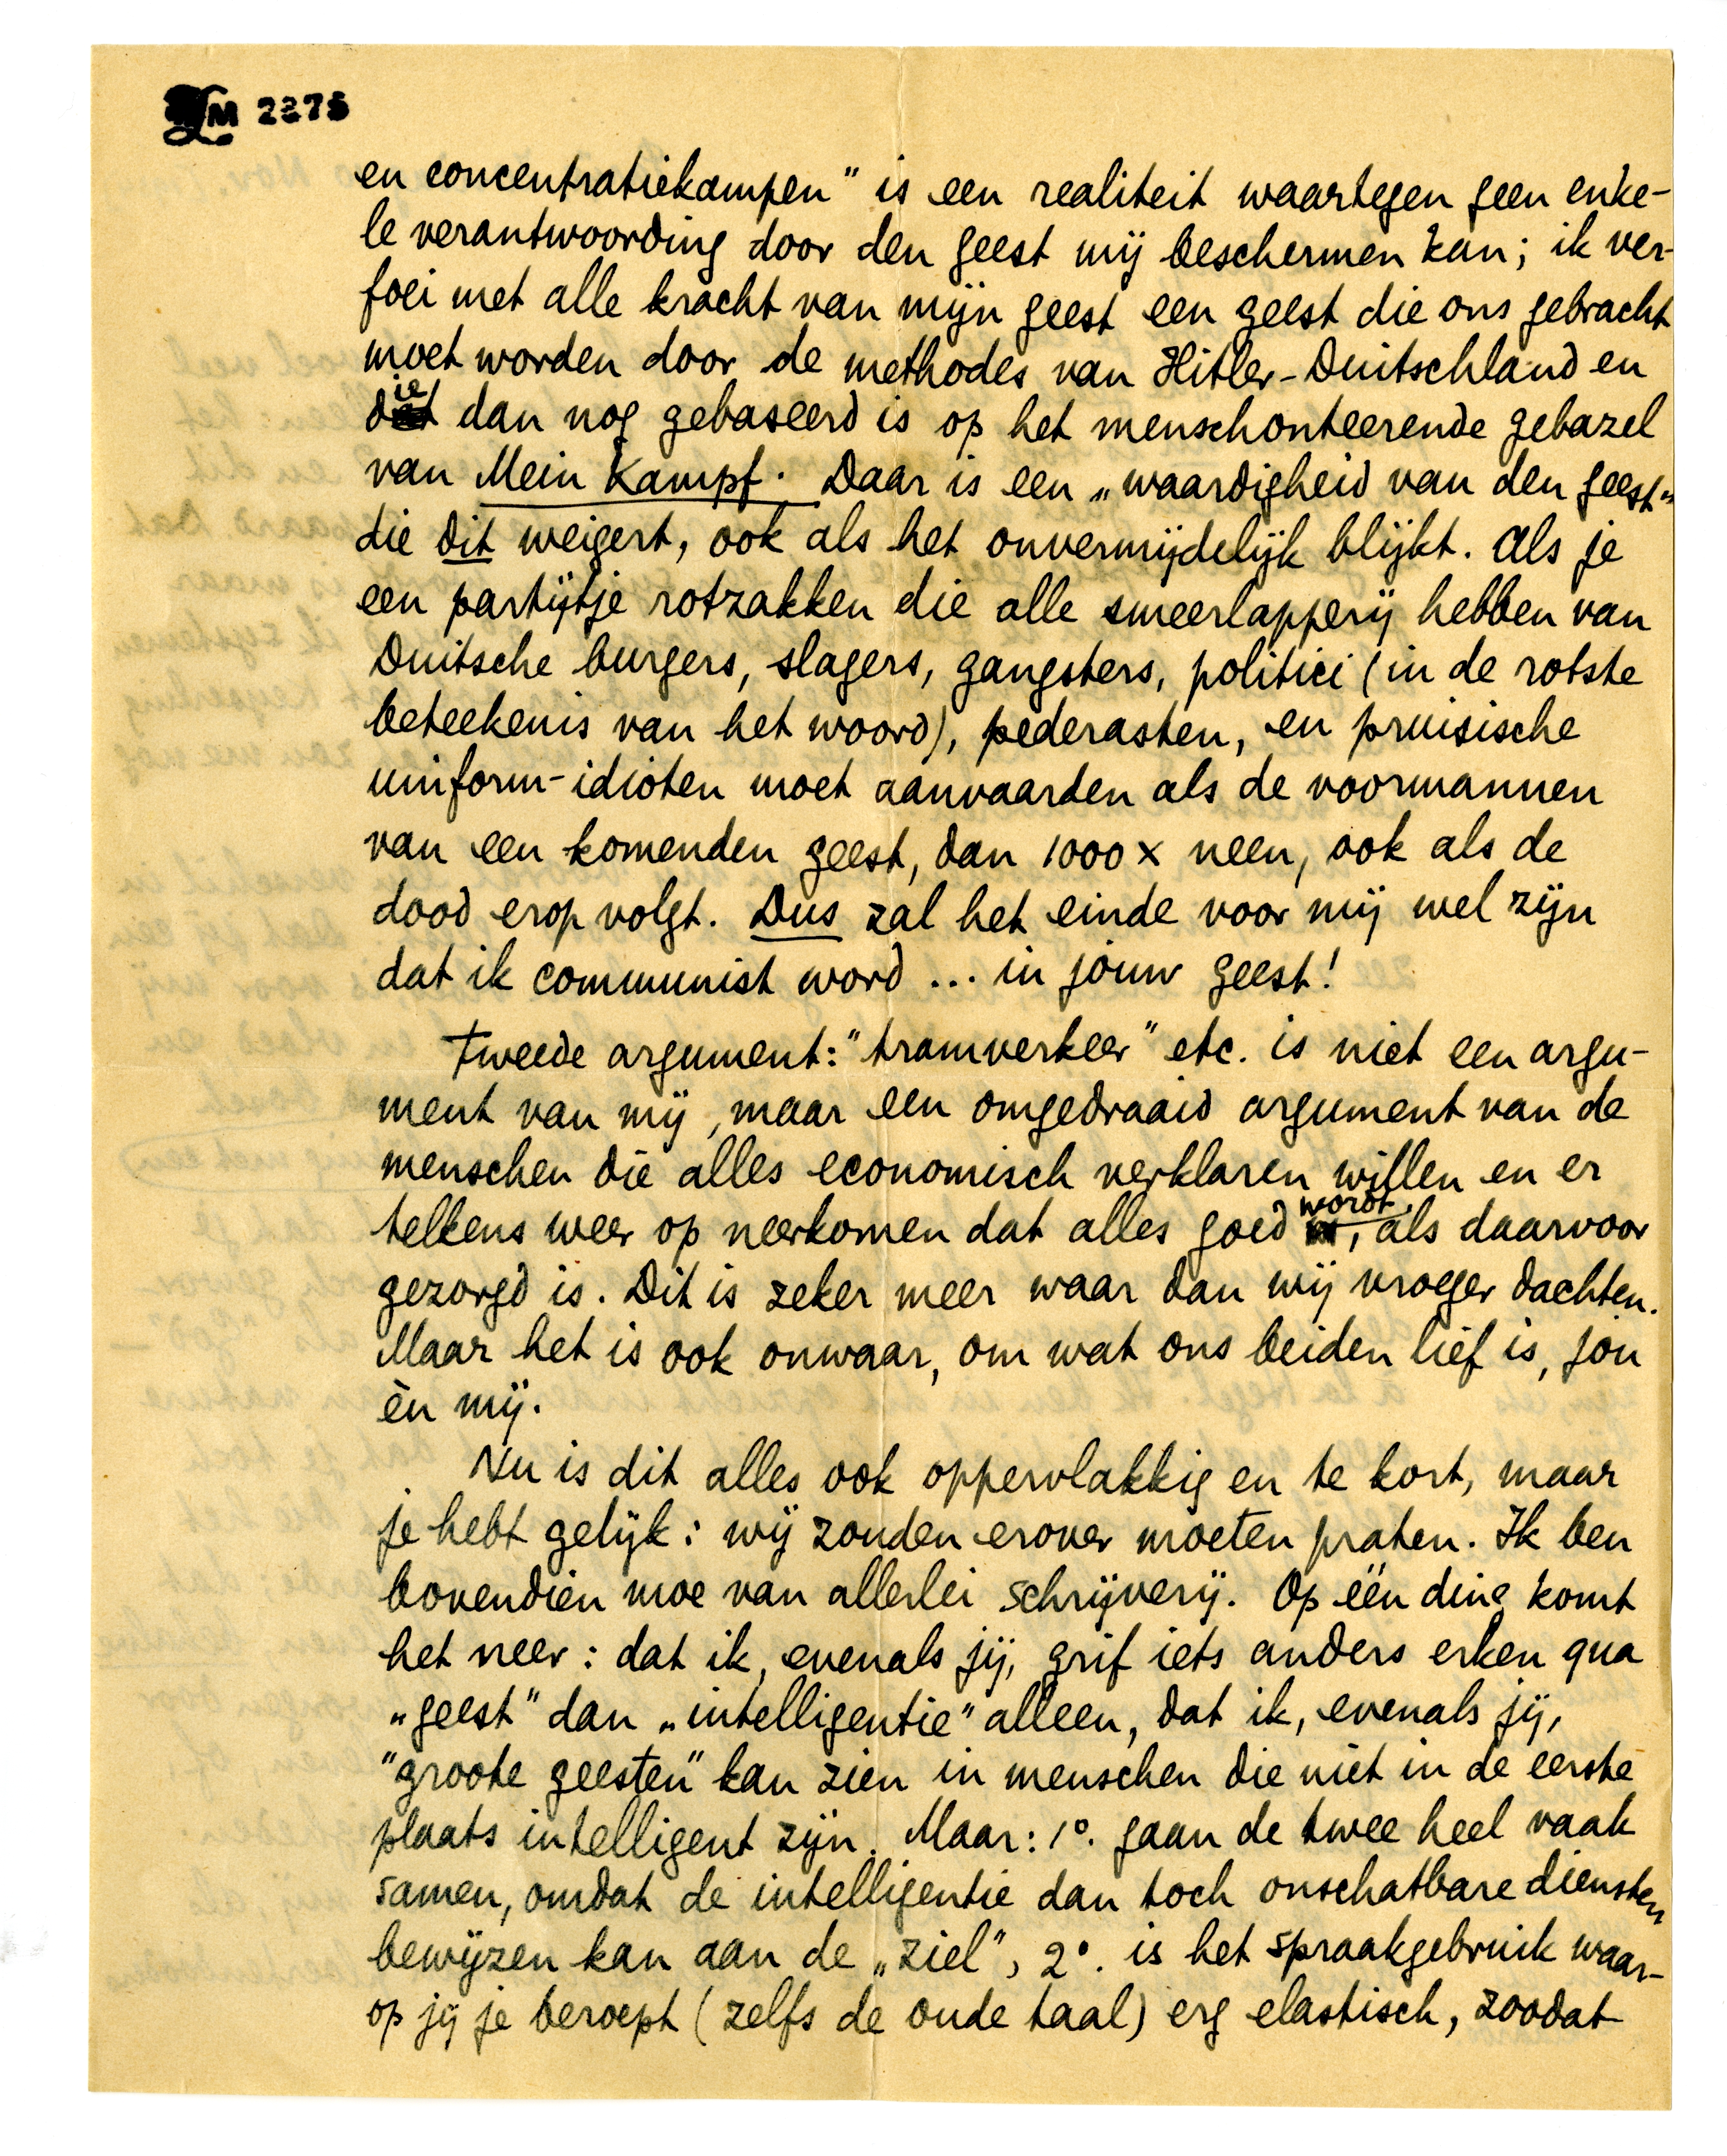 LM 2275
en concentratiekampen" is een realiteit waartegen geen enke-
le verantwoording door den geest mij beschermen kan; ik ver-
foei met alle kracht van mijn geest een geest die ons gebracht
moet worden door de methodes van Hitler-Duitschland en
die dan nog gebaseerd is op het menschonteerende gebazel
van Mein Kampf. Daar is een „waardigheid van den geest"
die dit weigert, ook als het onvermijdelijk blijkt. Als je
een partijtje rotzakken die alle smeerlapperij hebben van
Duitsche burgers, slagers, gangsters, politici (in de rotste
beteekenis van het woord), pederasten, en pruisische
uniform-idioten moet aanvaarden als de voormannen
van een komenden geest, dan 1000 x neen, ook als de
dood erop volgt. Dus zal het einde voor mij wel zijn
dat ik communist word ... in jouw geest!
Tweede argument: "tramverkeer" etc. is niet een argu-
ment van mij, maar een omgedraaid argument van de
menschen die alles economisch verklaren willen en er
telkens weer op neerkomen dat alles goed wordt, als daarvoor
gezorgd is. Dit is zeker meer waar dan wij vroeger dachten.
Maar het is ook onwaar, om wat ons beiden lief is, jou
èn mij.
Nu is dit alles ook oppervlakkig en te kort, maar
je hebt gelijk: wij zouden erover moeten praten. Ik ben
bovendien moe van allerlei schrijverij. Op één ding komt
het neer: dat ik, evenals jij, grif iets anders erken qua
„geest" dan „intelligentie" alleen, dat ik, evenals jij,
"groote geesten" kan zien in menschen die niet in de eerste
plaats intelligent zijn. Maar: 1°. gaan de twee heel vaak
samen, omdat de intelligentie dan toch onschatbare diensten
bewijzen kan aan de „ziel", 2°. is het spraakgebruik waar-
op jij je beroept (zelfs de oude taal) erg elastisch, zoodat